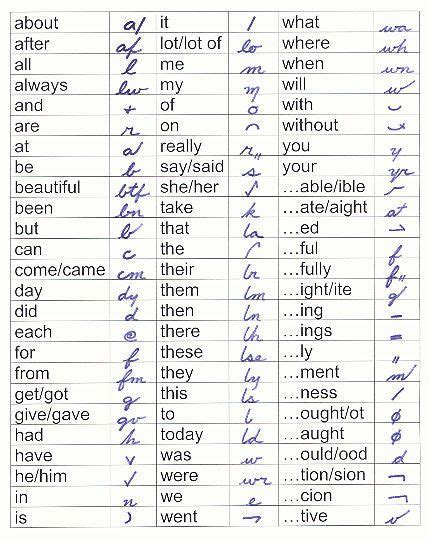 about a/ it / what wa
after af lot/lot of lo where wh
all l me m when wn
always lw my m will w
and + of o with
are r on without
at a/ really r,, you y
be b say/said s your yr
beautiful btf she/her ...able/ible
been bn take k ...ate/aight at
but b that la ...ed
can c the ...ful f
come/came cm their lr ...fully f,,
day dy them lm ...ight/ite
did d then ln ...ing –
each e there lh ...ings =
for f these lse ...ly ,,
from fm they ly ...ment m/
get/got g this ls ...ness /
give/gave gv to l ...ought/ot ø
had h today ld ...aught ø
have v was w ...ould/ood d
he/him were wr ...tion/sion ¬
in n we e ...cion ¬
is went ¬ ...tive v